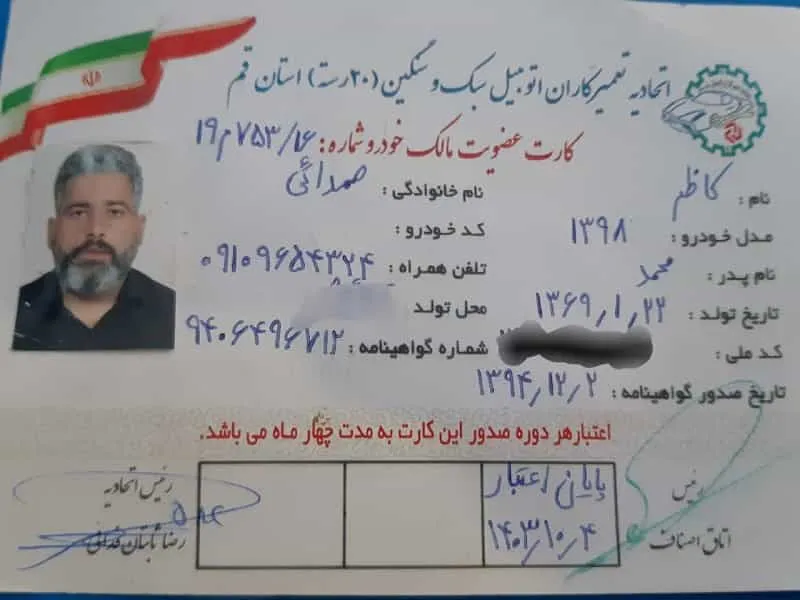 اتحادیه تعمیرکاران اتومبیل سبک و سنگین (۲۰ رسته) استان قم
کارت عضویت مالک خودرو شماره: ۱۶/۷۵۳م۱۹
نام: کاظم نام خانوادگی: صمدائی
مدل خودرو: ۱۳۹۸ کد خودرو:
نام پدر: محمد تلفن همراه: ۰۹۱۰۹۶۵۴۳۲۴
تاریخ تولد: ۱۳۶۹/۱/۲۲ محل تولد
کد ملی: شماره گواهینامه: ۹۴۰۶۴۹۶۷۱۲
تاریخ صدور گواهینامه: ۱۳۹۴/۱۲/۲
اعتبار هر دوره صدور این کارت به مدت چهار ماه می باشد.
رئیس
اتاق اصناف
پایان اعتبار
۱۴۰۳/۱۰/۴
رئیس اتحادیه
رضا